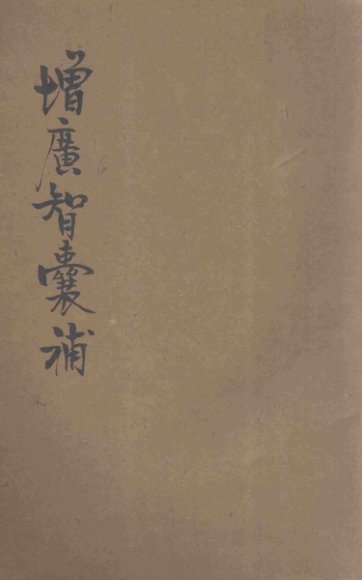 增廣智囊補